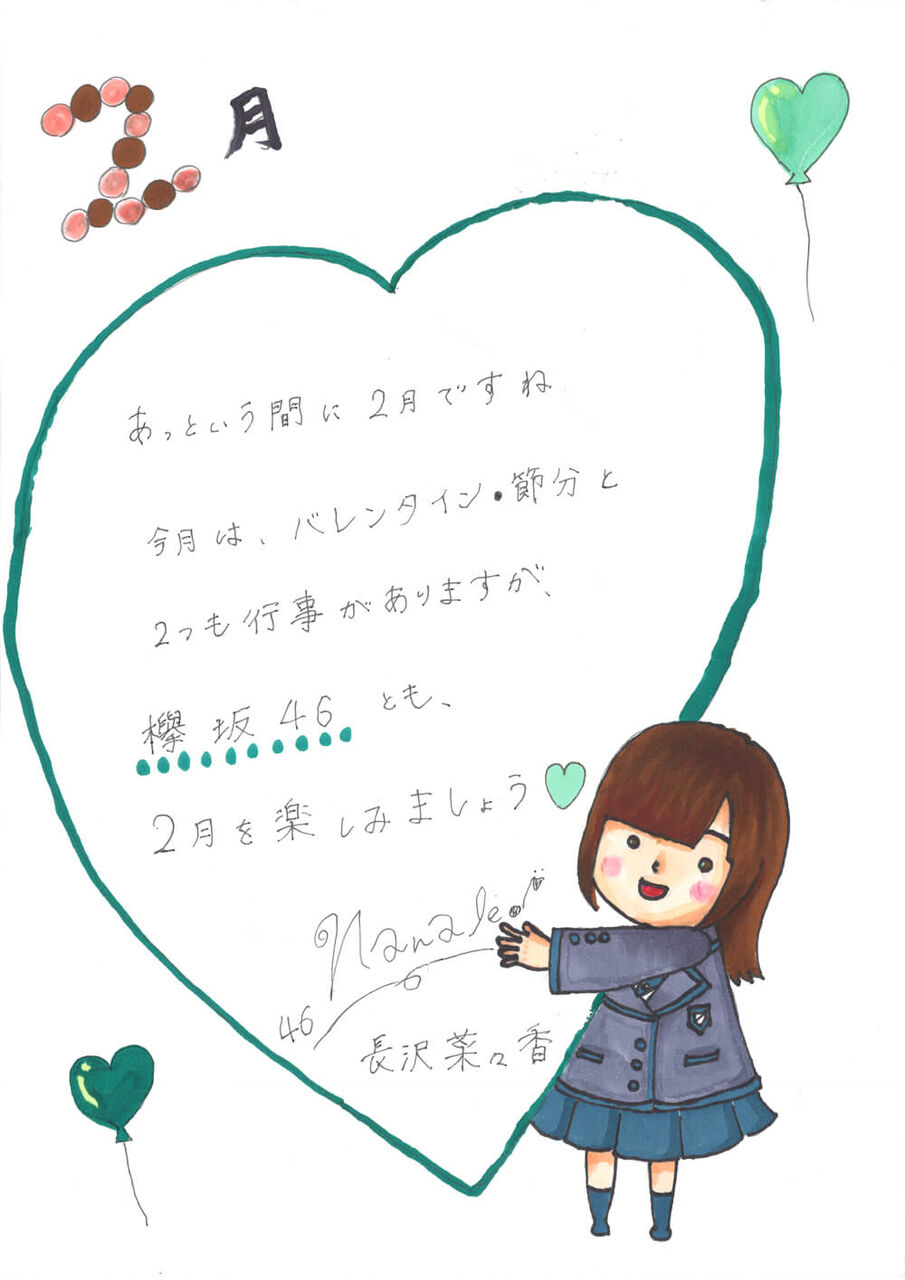 2月
あっという間に2月ですね
今月は、バレンタイン・節分と
2つも行事がありますが、
欅坂46とも、
2月を楽しみましょう
46
長沢菜々香